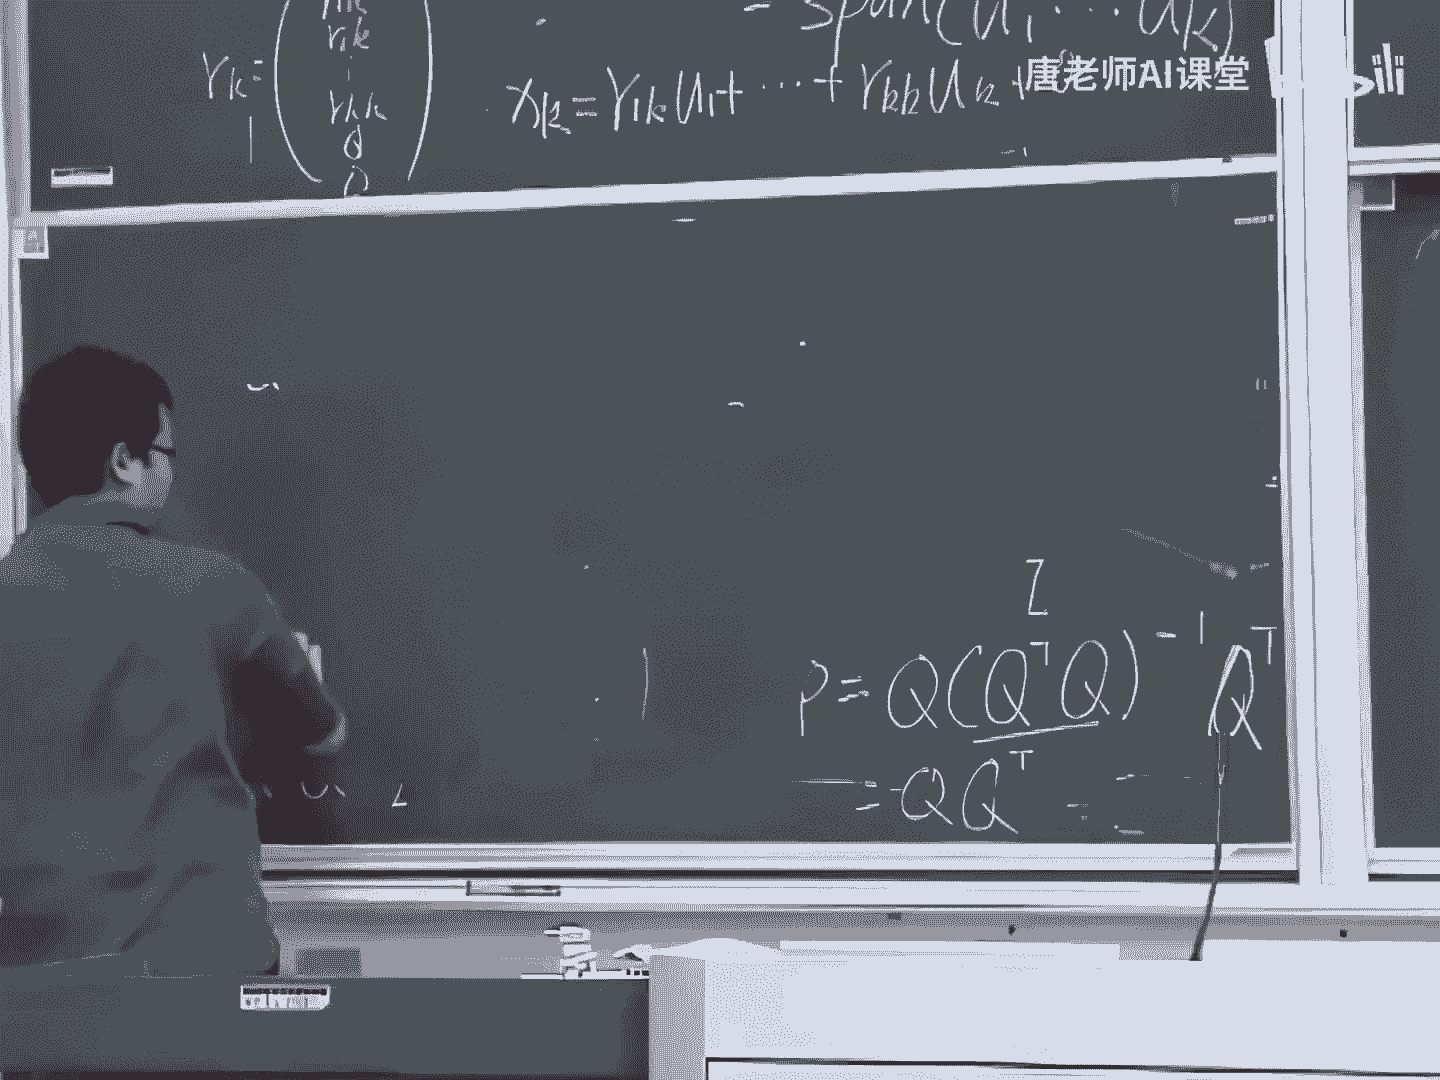 = span(u₁ ⋯ uₖ)
rₖ = ( r₁ₖ ⋮ rₖₖ 0 0 )
xₖ = r₁ₖ u₁ + ⋯ + rₖₖ uₖ +
唐老师AI课堂
I
P = Q(QᵀQ)⁻¹Qᵀ
= QQᵀ =